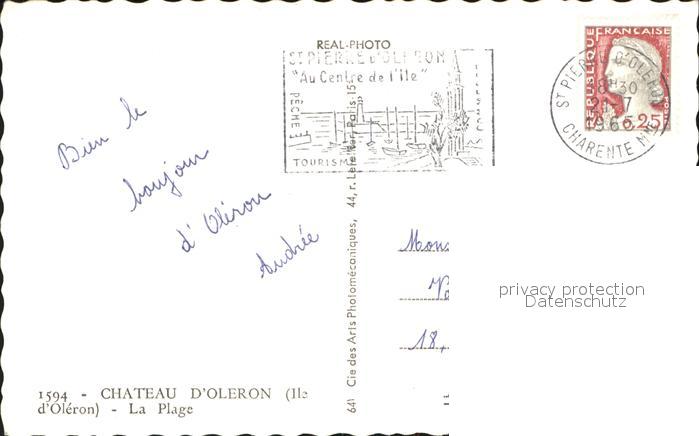 REAL-PHOTO
ST PIERRE D'OLERON
"Au Centre de l'Ile"
PÊCHE
TOURISME
REPUBLIQUE FRANCAISE
0,25
ST PIERRE D'OLERON
8H30
CHARENTE MME
Bien le
bonjour
d'Oléron
Andrée
Mons
18,
privacy protection
Datenschutz
641 Cie des Arts Photomécaniques, 44, r. Letellier, Paris-15
1594 - CHATEAU D'OLERON (Ile
d'Oléron) - La Plage